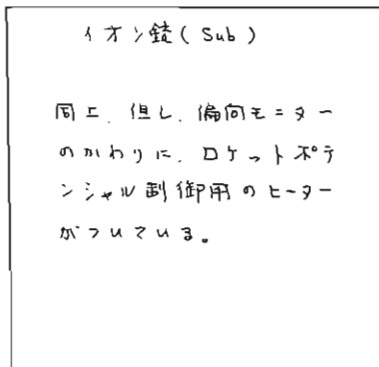 イオン鏡(Sub)
同上、但し、偏向モニター
のかわりに、ロケットポテ
ンシャル制御用のヒーター
がついている。